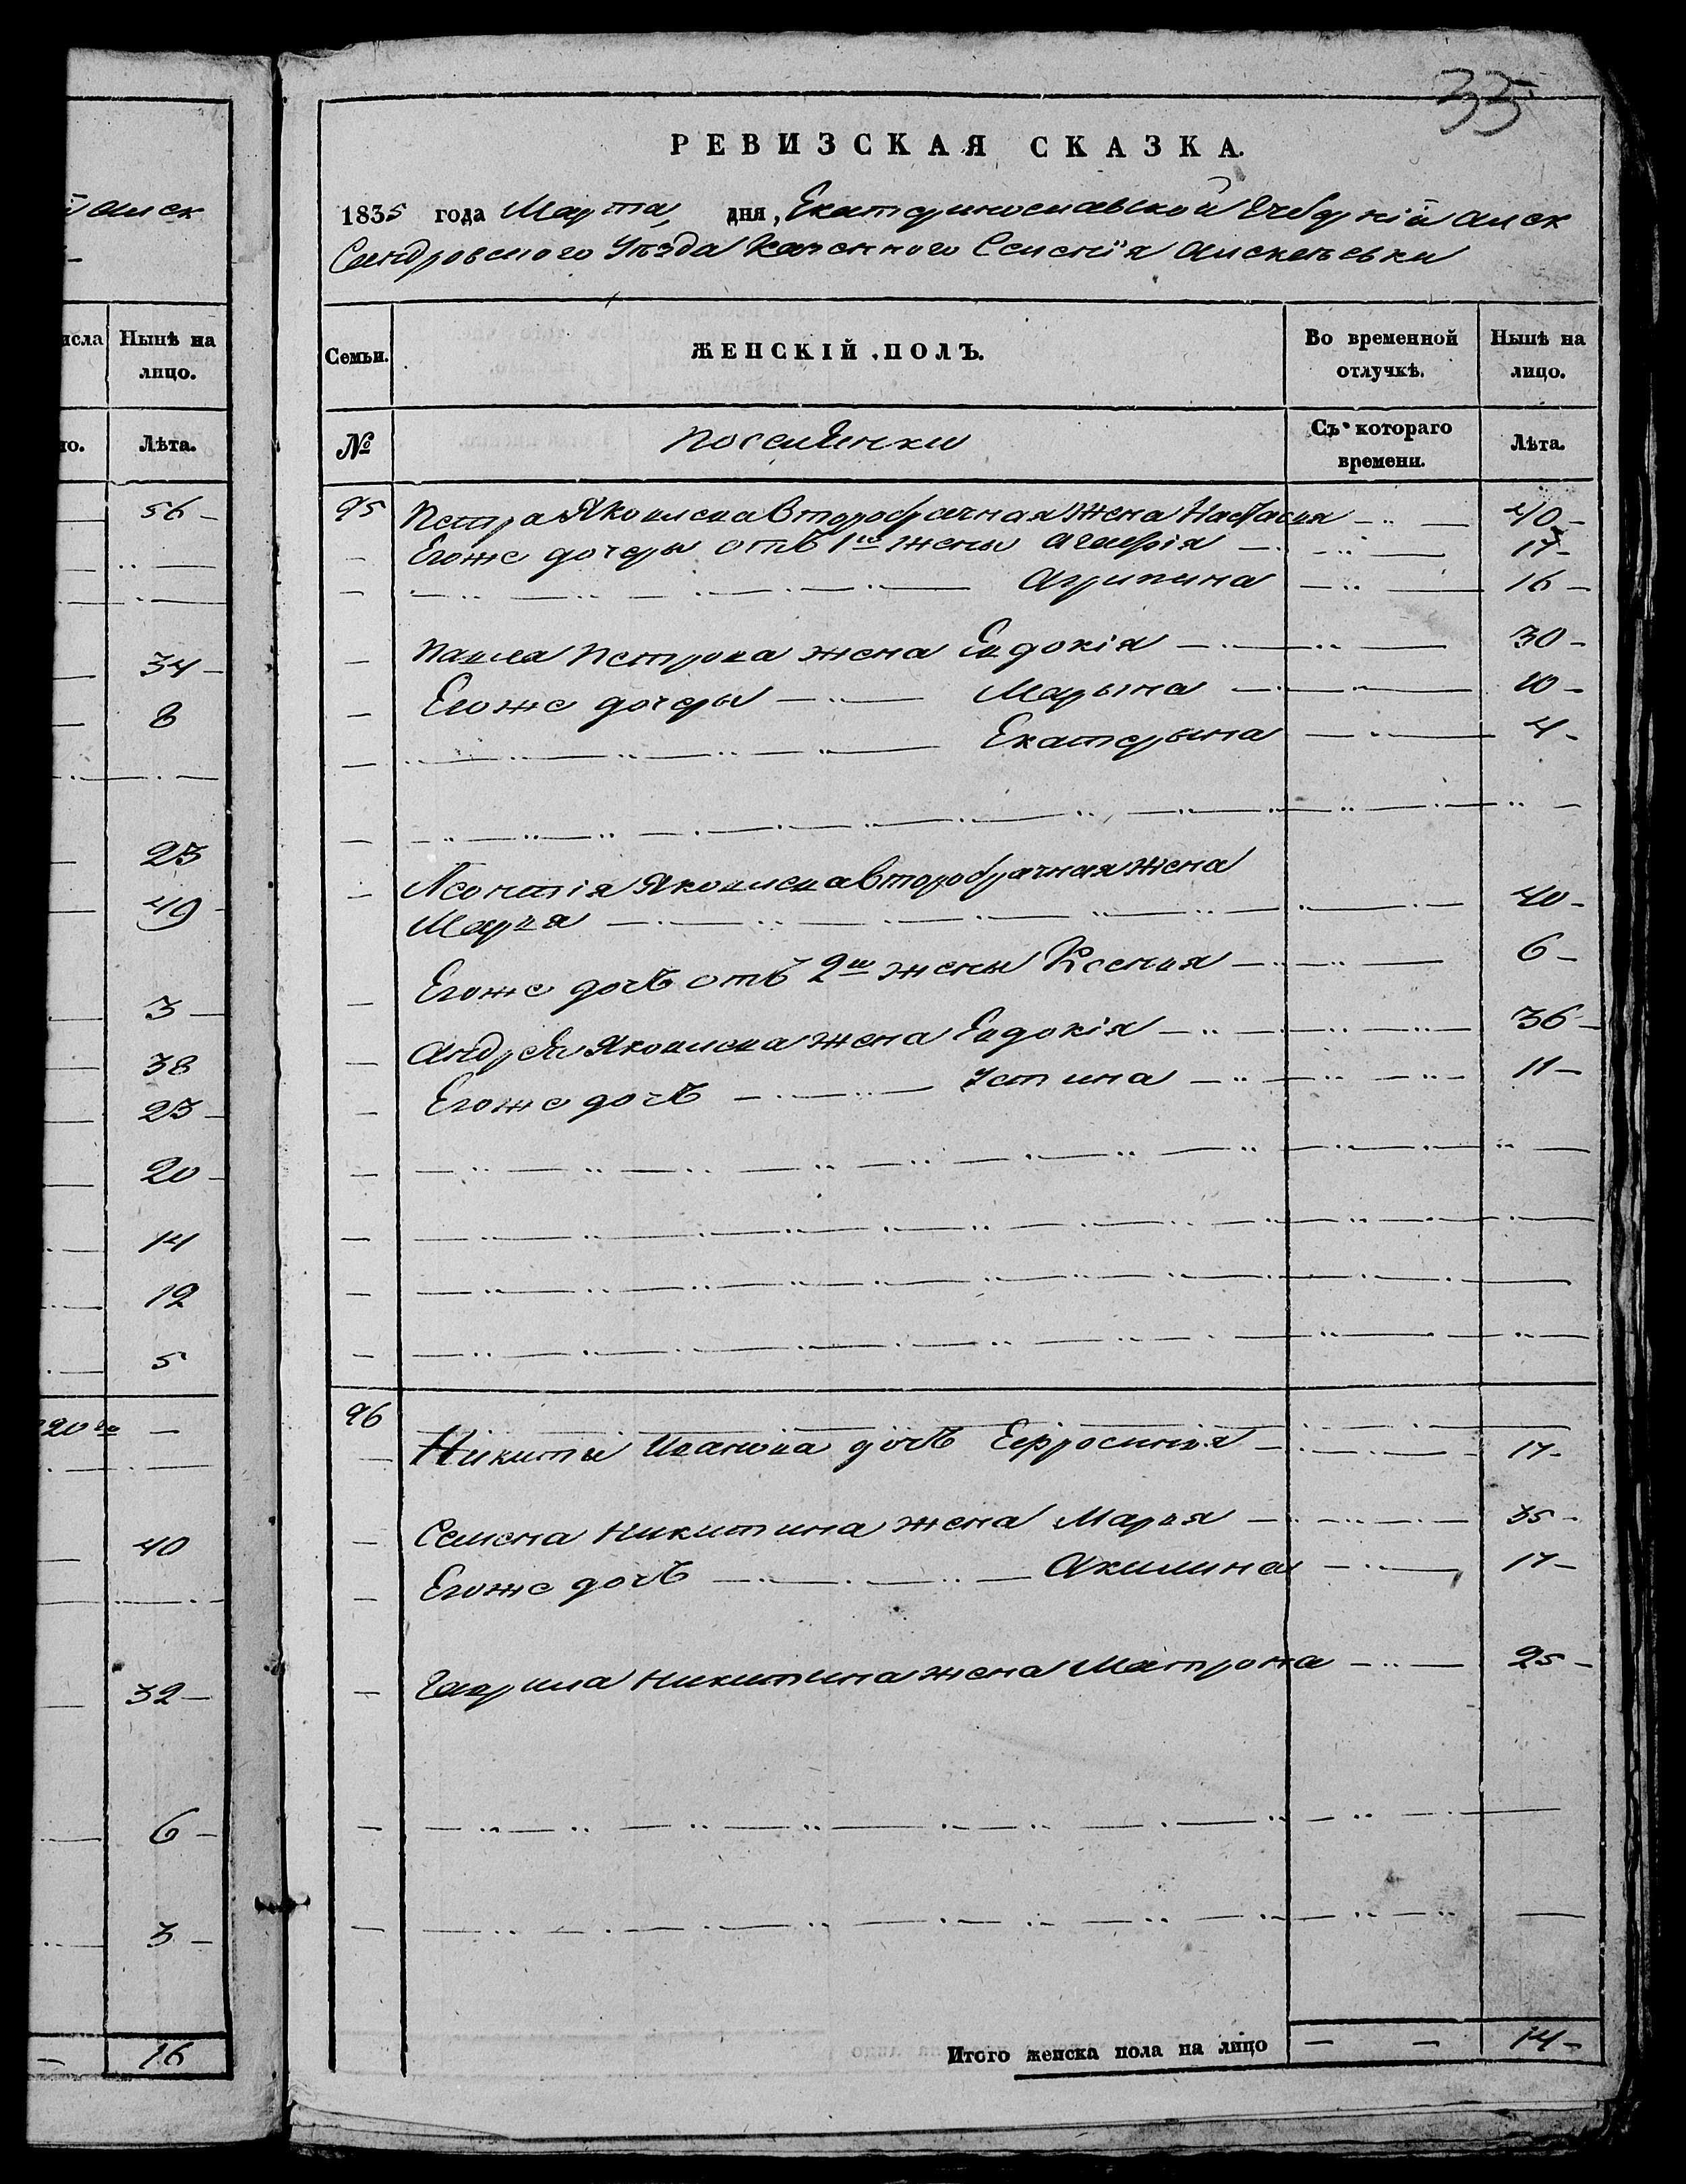 35
РЕВИЗСКАЯ СКАЗКА.
1835 года Марта, дня, Екатериославской Губерніи Алек
сандровского Уѣзда Казенного Селенія Алексѣевки
Семьи.
ЖЕНСКІЙ ПОЛЪ.
Во временной отлучкѣ.
Нынѣ на лицо.
№
поселянки
Съ котораго времени.
Лѣта.
95 Петра Яковлева второбрачная жена Настасия 40
Егоже дочеры отъ 1й жены 17
Агрипина 16
Павла Петрова жена Евдокія 30
Егоже дочеры Марына 10
Екатерына 4
Леонтія Яковлева второбрачная жена
Марья 40
Егоже дочь отъ 2й жены Ксения 6
Андрея Яковлева жена Евдокія 36
Егоже дочь Устина 11
96
Никиты Иванова дочь Ефросиния 17
Семена Никитина жена Марья 35
Егоже дочь Акилина 17
Гаврила Никитина жена Матрона 25
Итого женска пола на лицо 14
алек
исла
Нынѣ на лицо.
ло.
Лѣта.
56
34
8
23
49
3
38
23
20
14
12
5
40
32
6
3
16